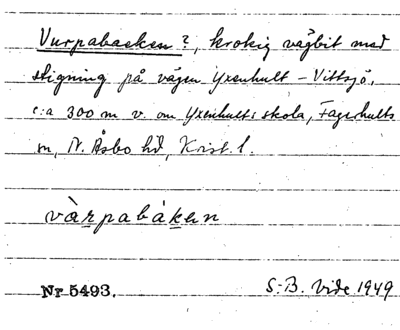 Vurpabacken?, krokig vägbit med
stigning på vägen Yxenhult – Vittsjö,
c:a 300 m v. om Yxenhults skola, Fagerhults
sn, N. Åsbo hd, Krist. l.
vàrpabákan
Nr 5493. S.-B. Vide 1949